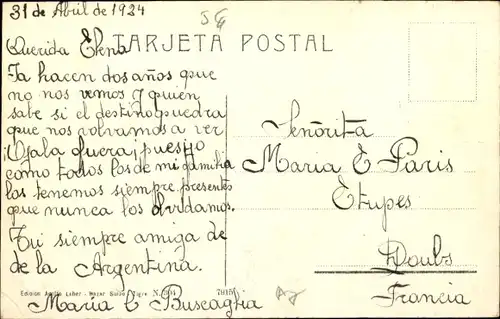 31 de Abril de 1924
Querida Elena
TARJETA POSTAL
Ya hacen dos años que
no nos vemos y quien
sabe si el destino quedra
que nos volvamos a ver
¡Ojala fuera, puesto
como todos los de mi familia
los tenemos siempre presentes
que nunca los olvidamos.
Tu siempre amiga de
de la Argentina.
Maria E Buscaglia
Señorita
Maria E Paris
Etupes
Doubs
Francia
Edicion Bazar Tigre N.